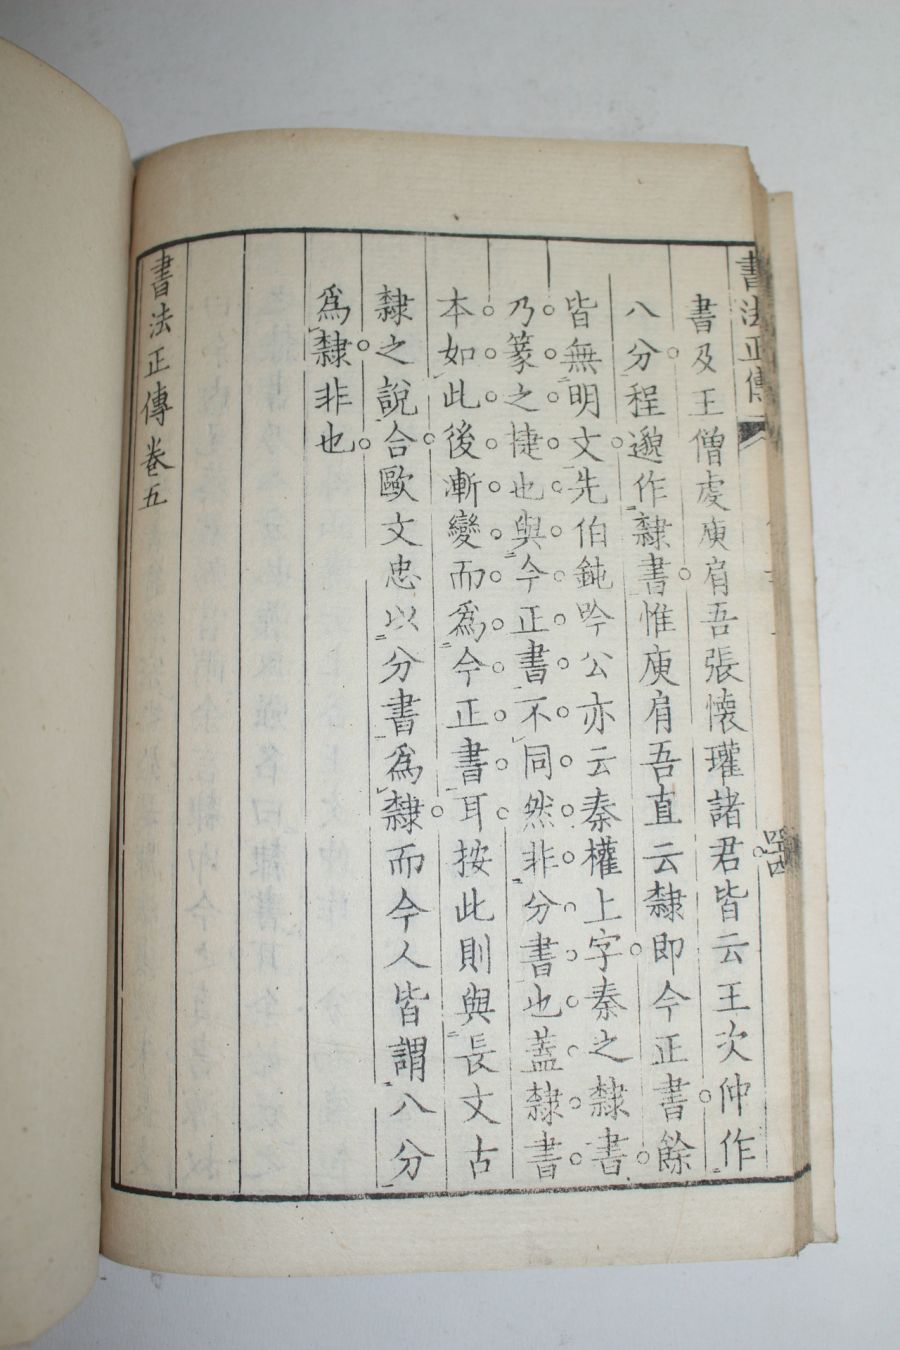 書法正傳
書及王僧虔庾肩吾張懐瓘諸君皆云王次仲作
八分程邈作隸書惟庾肩吾直云隸即今正書餘
皆無明文先伯鈍吟公亦云秦權上字秦之隸書
乃篆之捷也與今正書不同然非分書也葢隸書
本如此後漸變而爲今正書耳按此則與長文古
隸之說合歐文忠以分書爲隸而今人皆謂八分
爲隸非也
書法正傳卷五